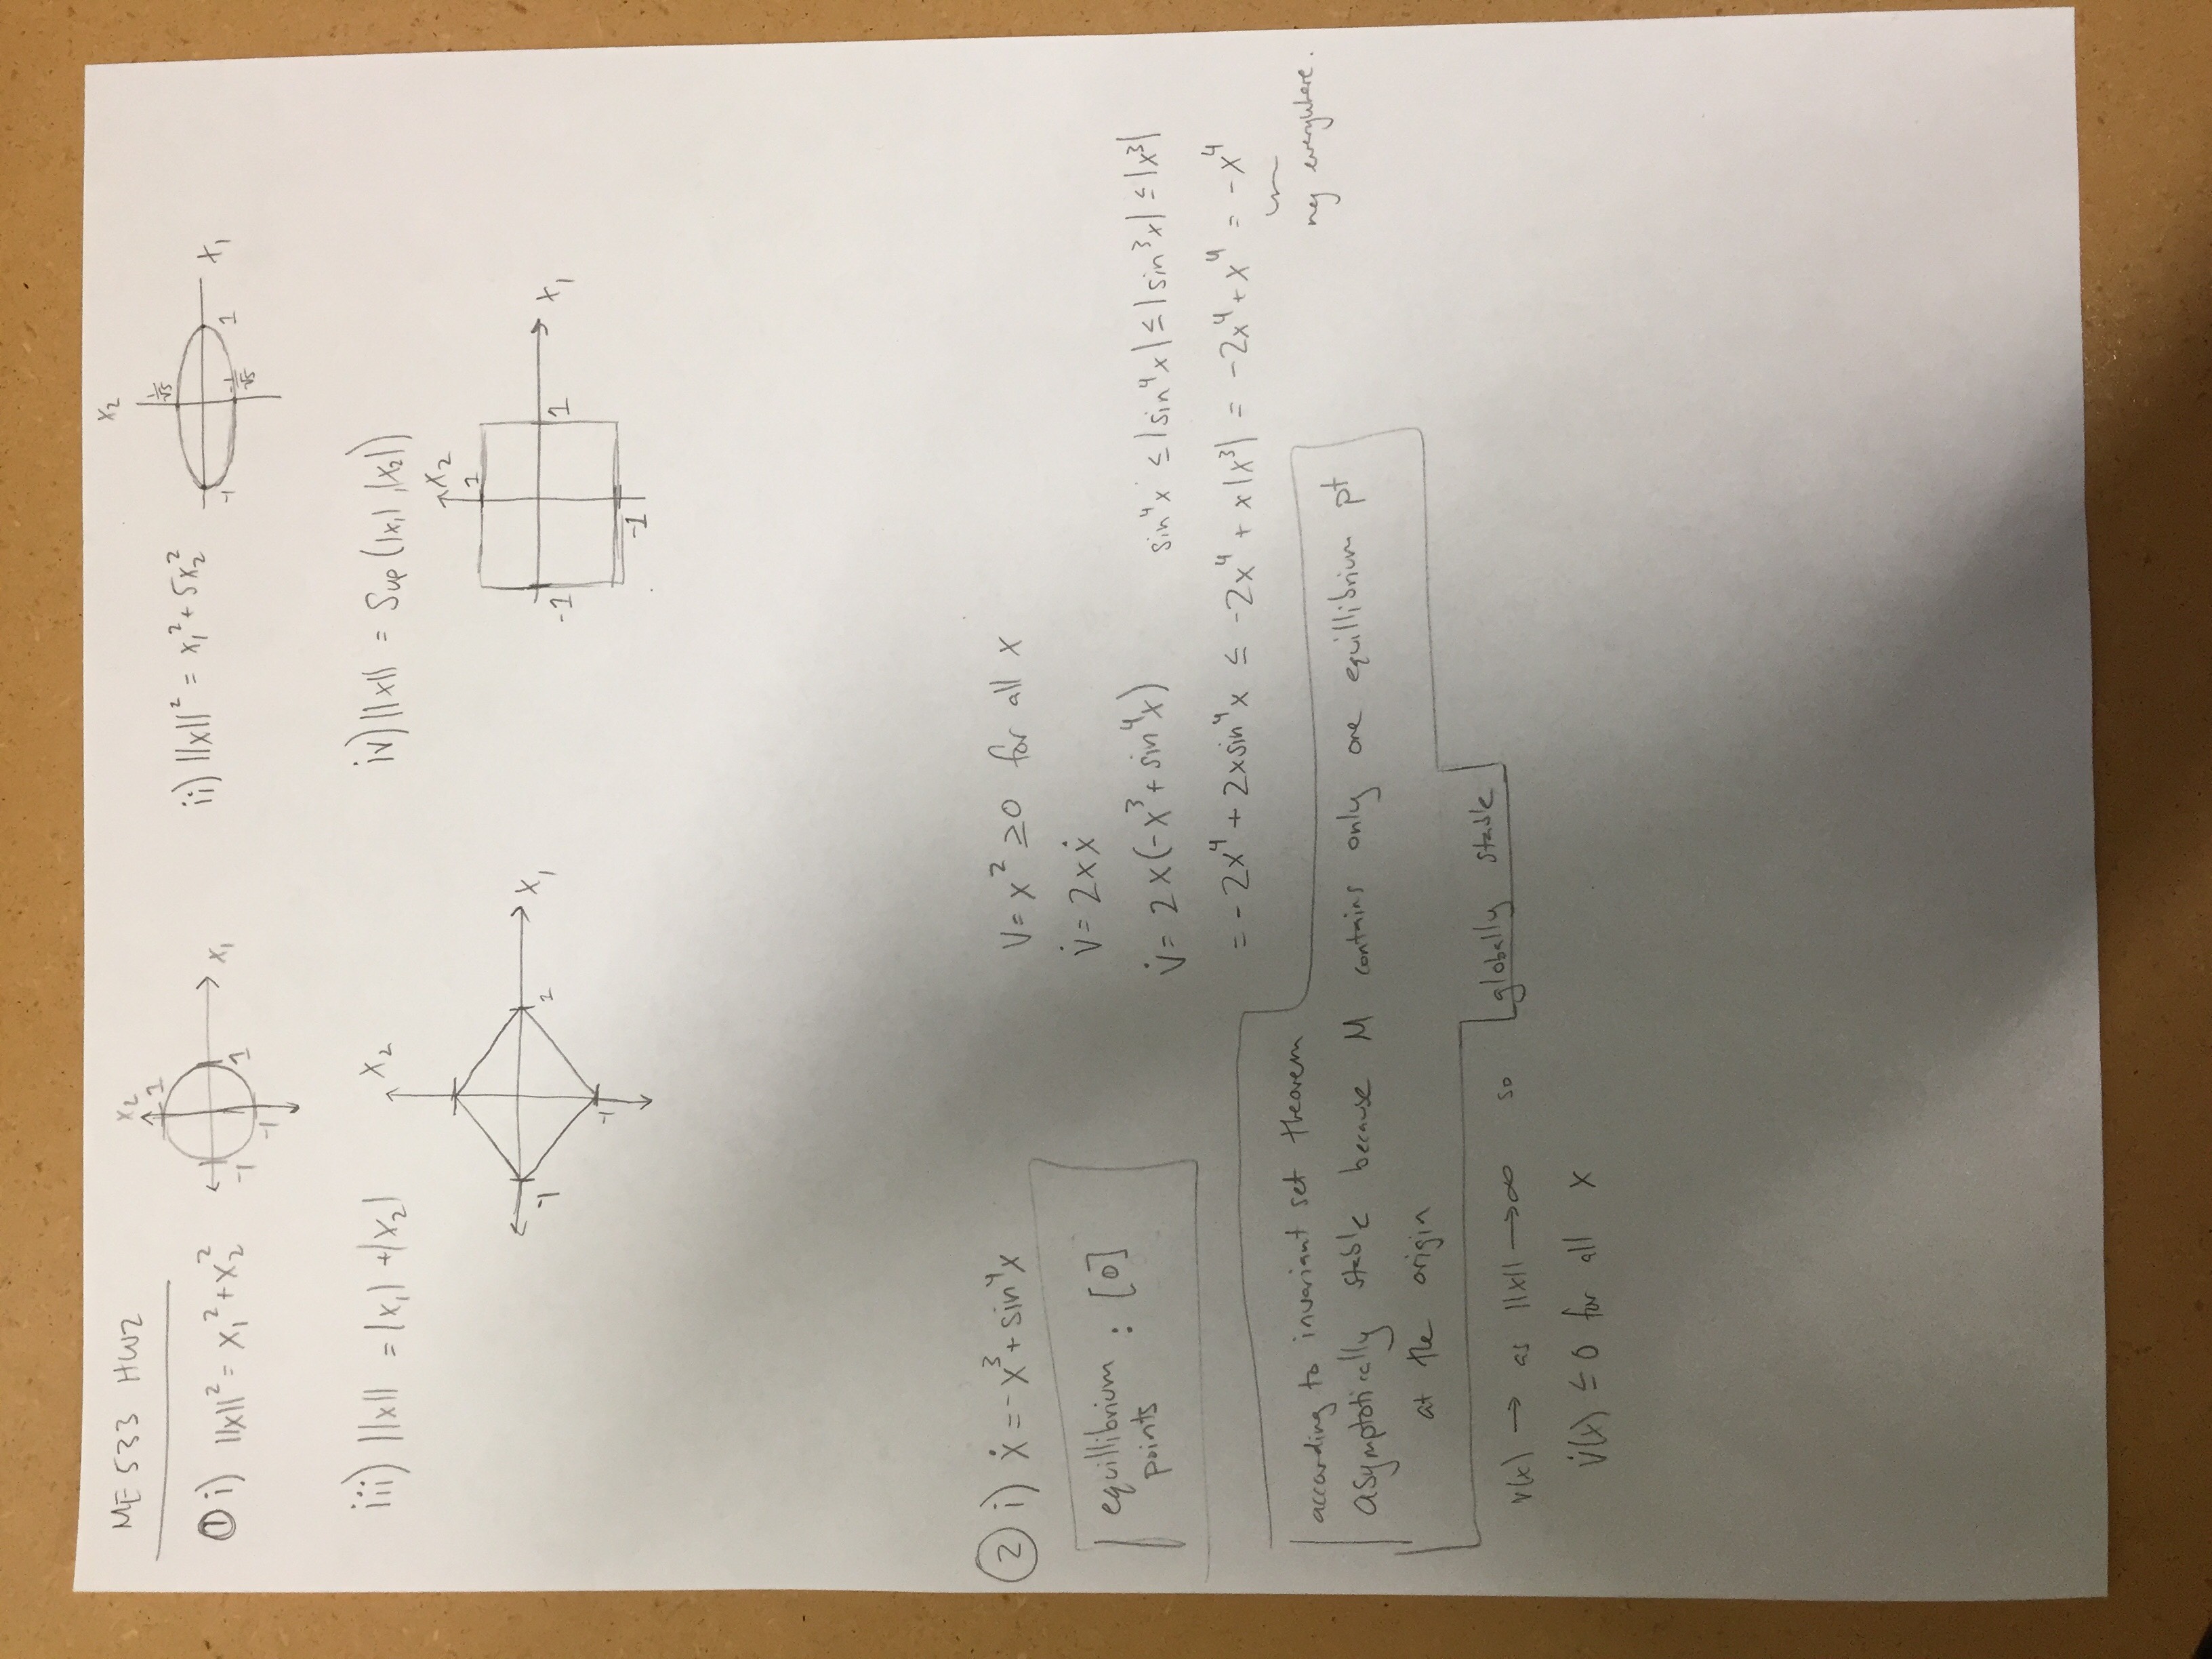 ME 533 HW2
① i) ||x||² = x₁² + x₂²
x₂
1
-1
1
x₁
-1
ii) ||x||² = x₁² + 5x₂²
x₂
1/√5
-1
1
x₁
-1/√5
iii) ||x|| = |x₁| + |x₂|
x₂
-1
2
x₁
-1
iv) ||x|| = Sup (|x₁|, |x₂|)
x₂
1
-1
1
x₁
-1
② i) ẋ = -x³ + sin⁴x
equillibrium points : [0]
V = x² ≥ 0 for all x
V̇ = 2xẋ
V̇ = 2x(-x³ + sin⁴x)
sin⁴x ≤ |sin⁴x| ≤ |sin³x| ≤ |x³|
= -2x⁴ + 2x sin⁴x ≤ -2x⁴ + x|x³| = -2x⁴ + x⁴ = -x⁴
neg everywhere.
according to invariant set theorem
asymptotically stable because M contains only one equillibrium pt
at the origin
v(x) → as ||x|| → ∞ so globally stable
v̇(x) ≤ 0 for all x